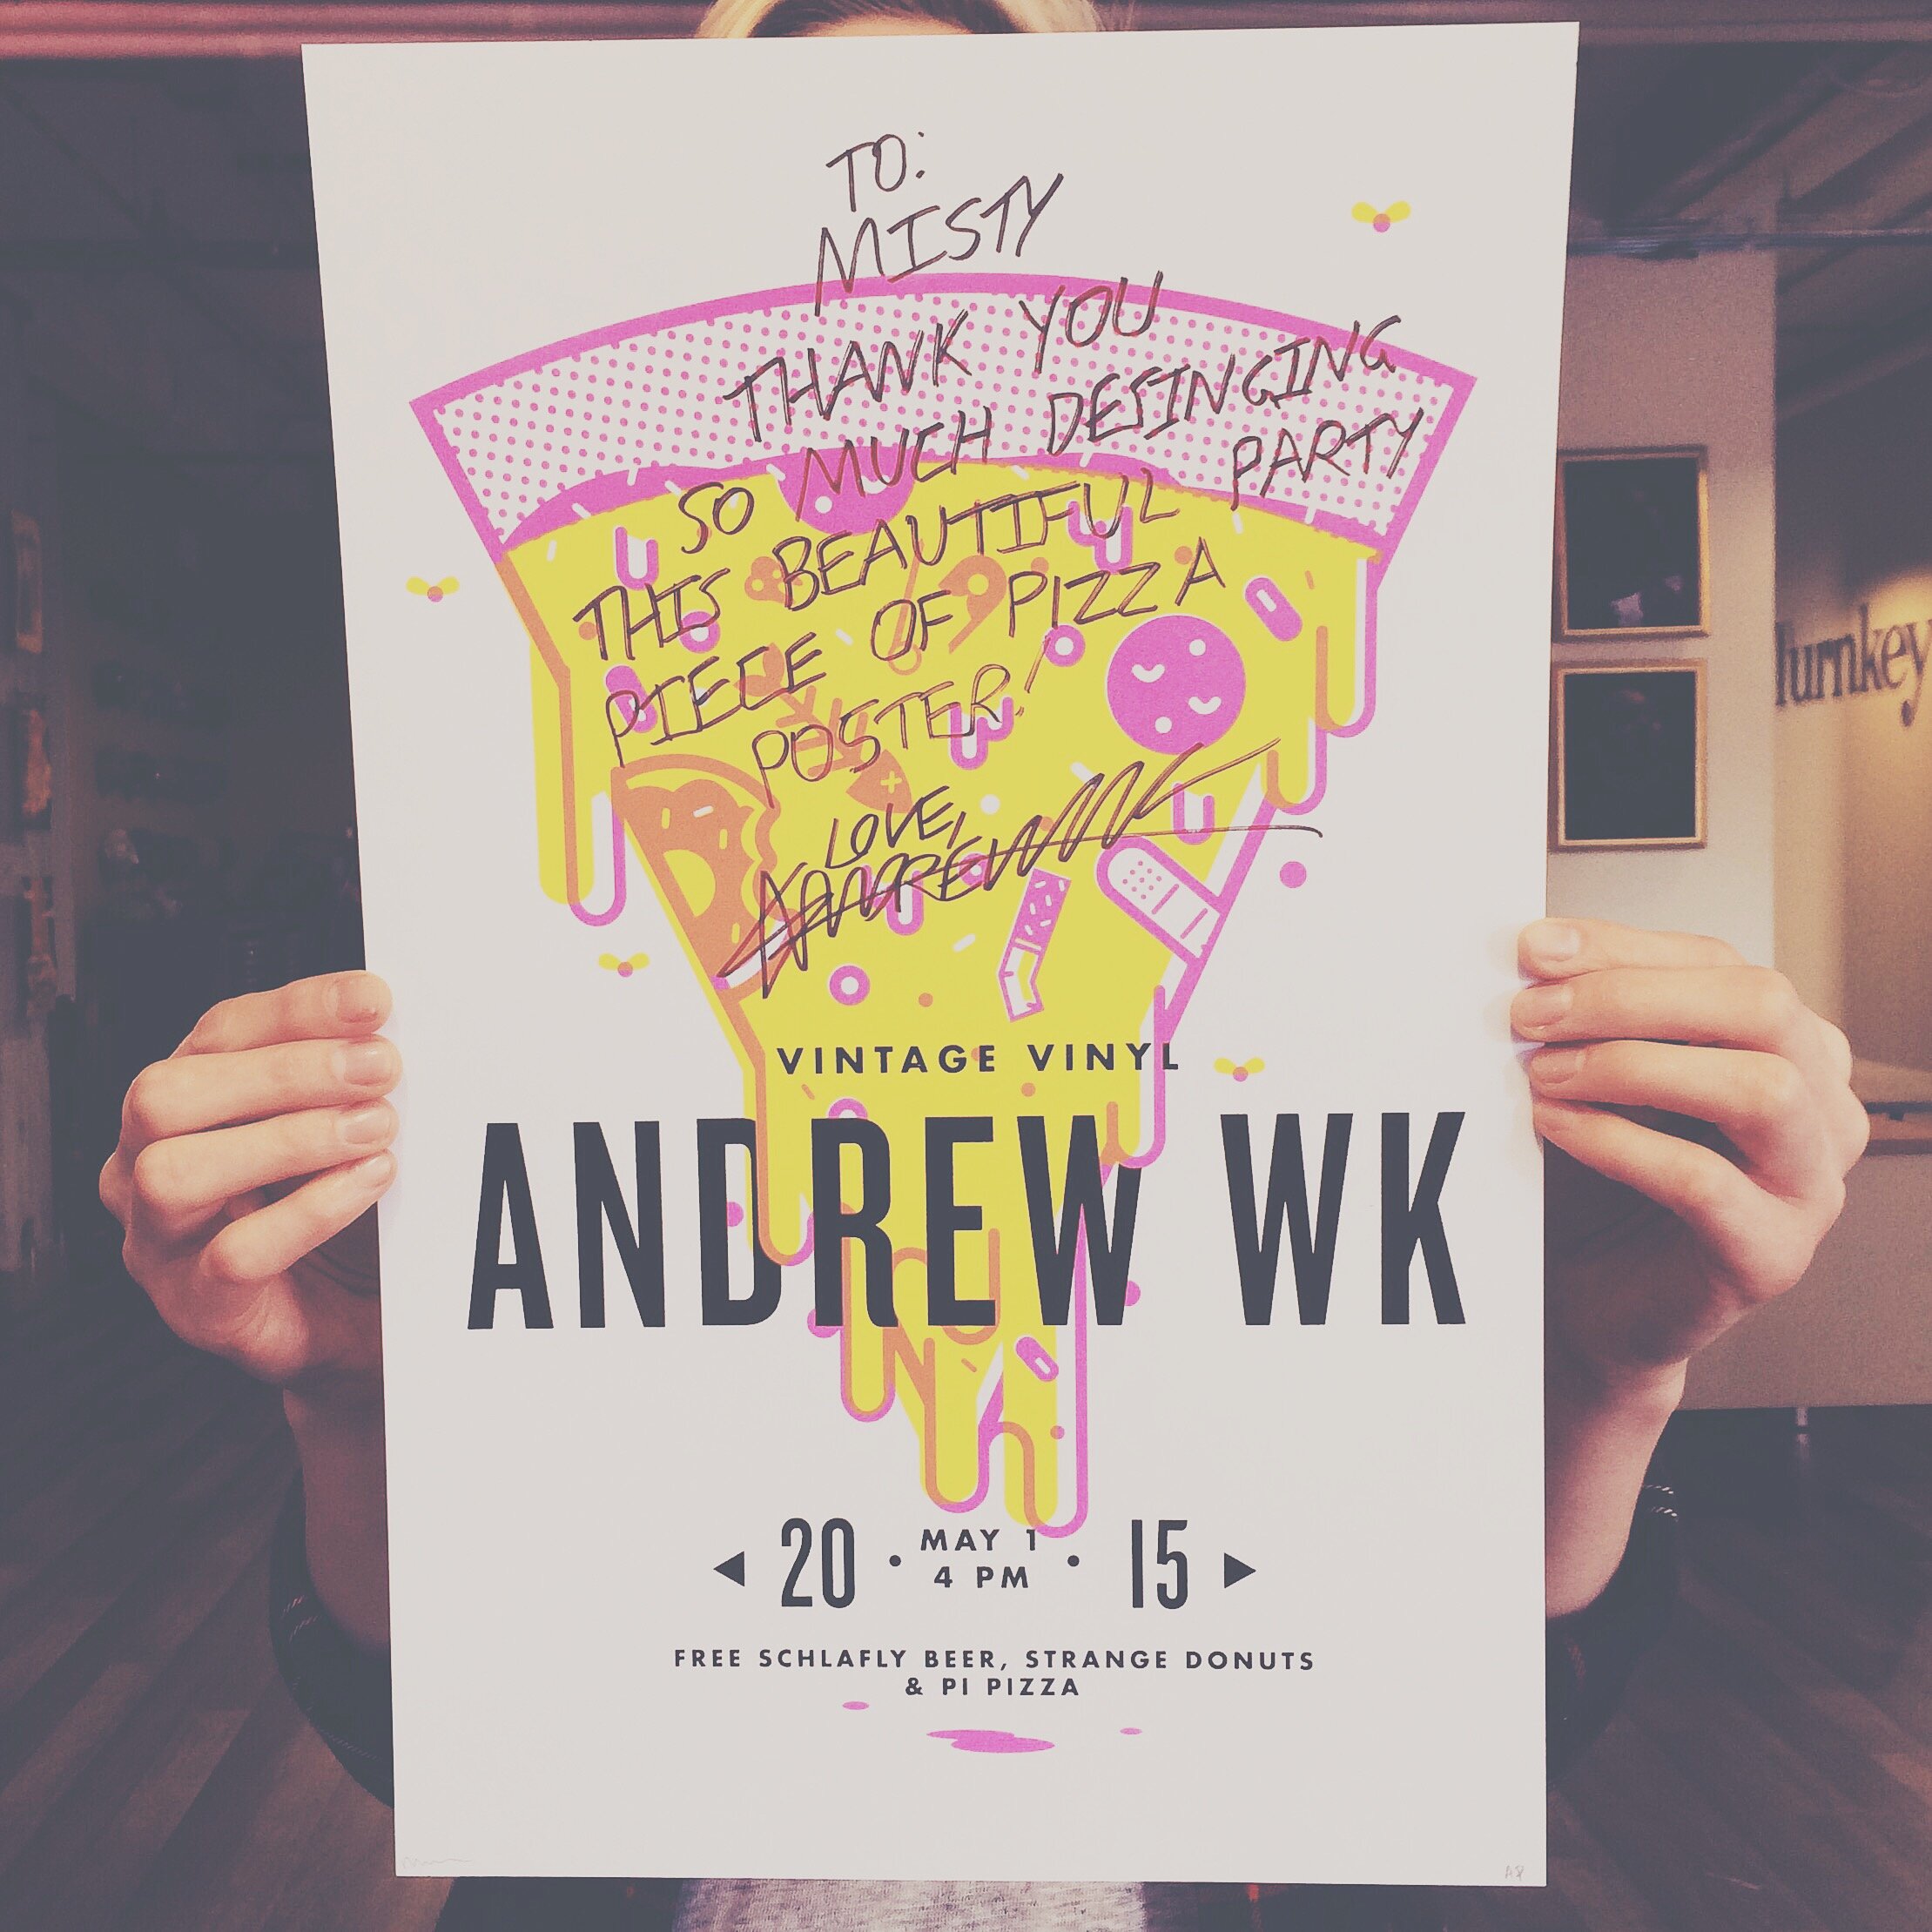 TO:
MISTY
THANK YOU
SO MUCH DESINGING
THIS BEAUTIFUL PARTY
PIECE OF PIZZA
POSTER!
LOVE,
ANDREW WK
VINTAGE VINYL
ANDREW WK
20 • MAY 1 4 PM • 15
FREE SCHLAFLY BEER, STRANGE DONUTS
& PI PIZZA